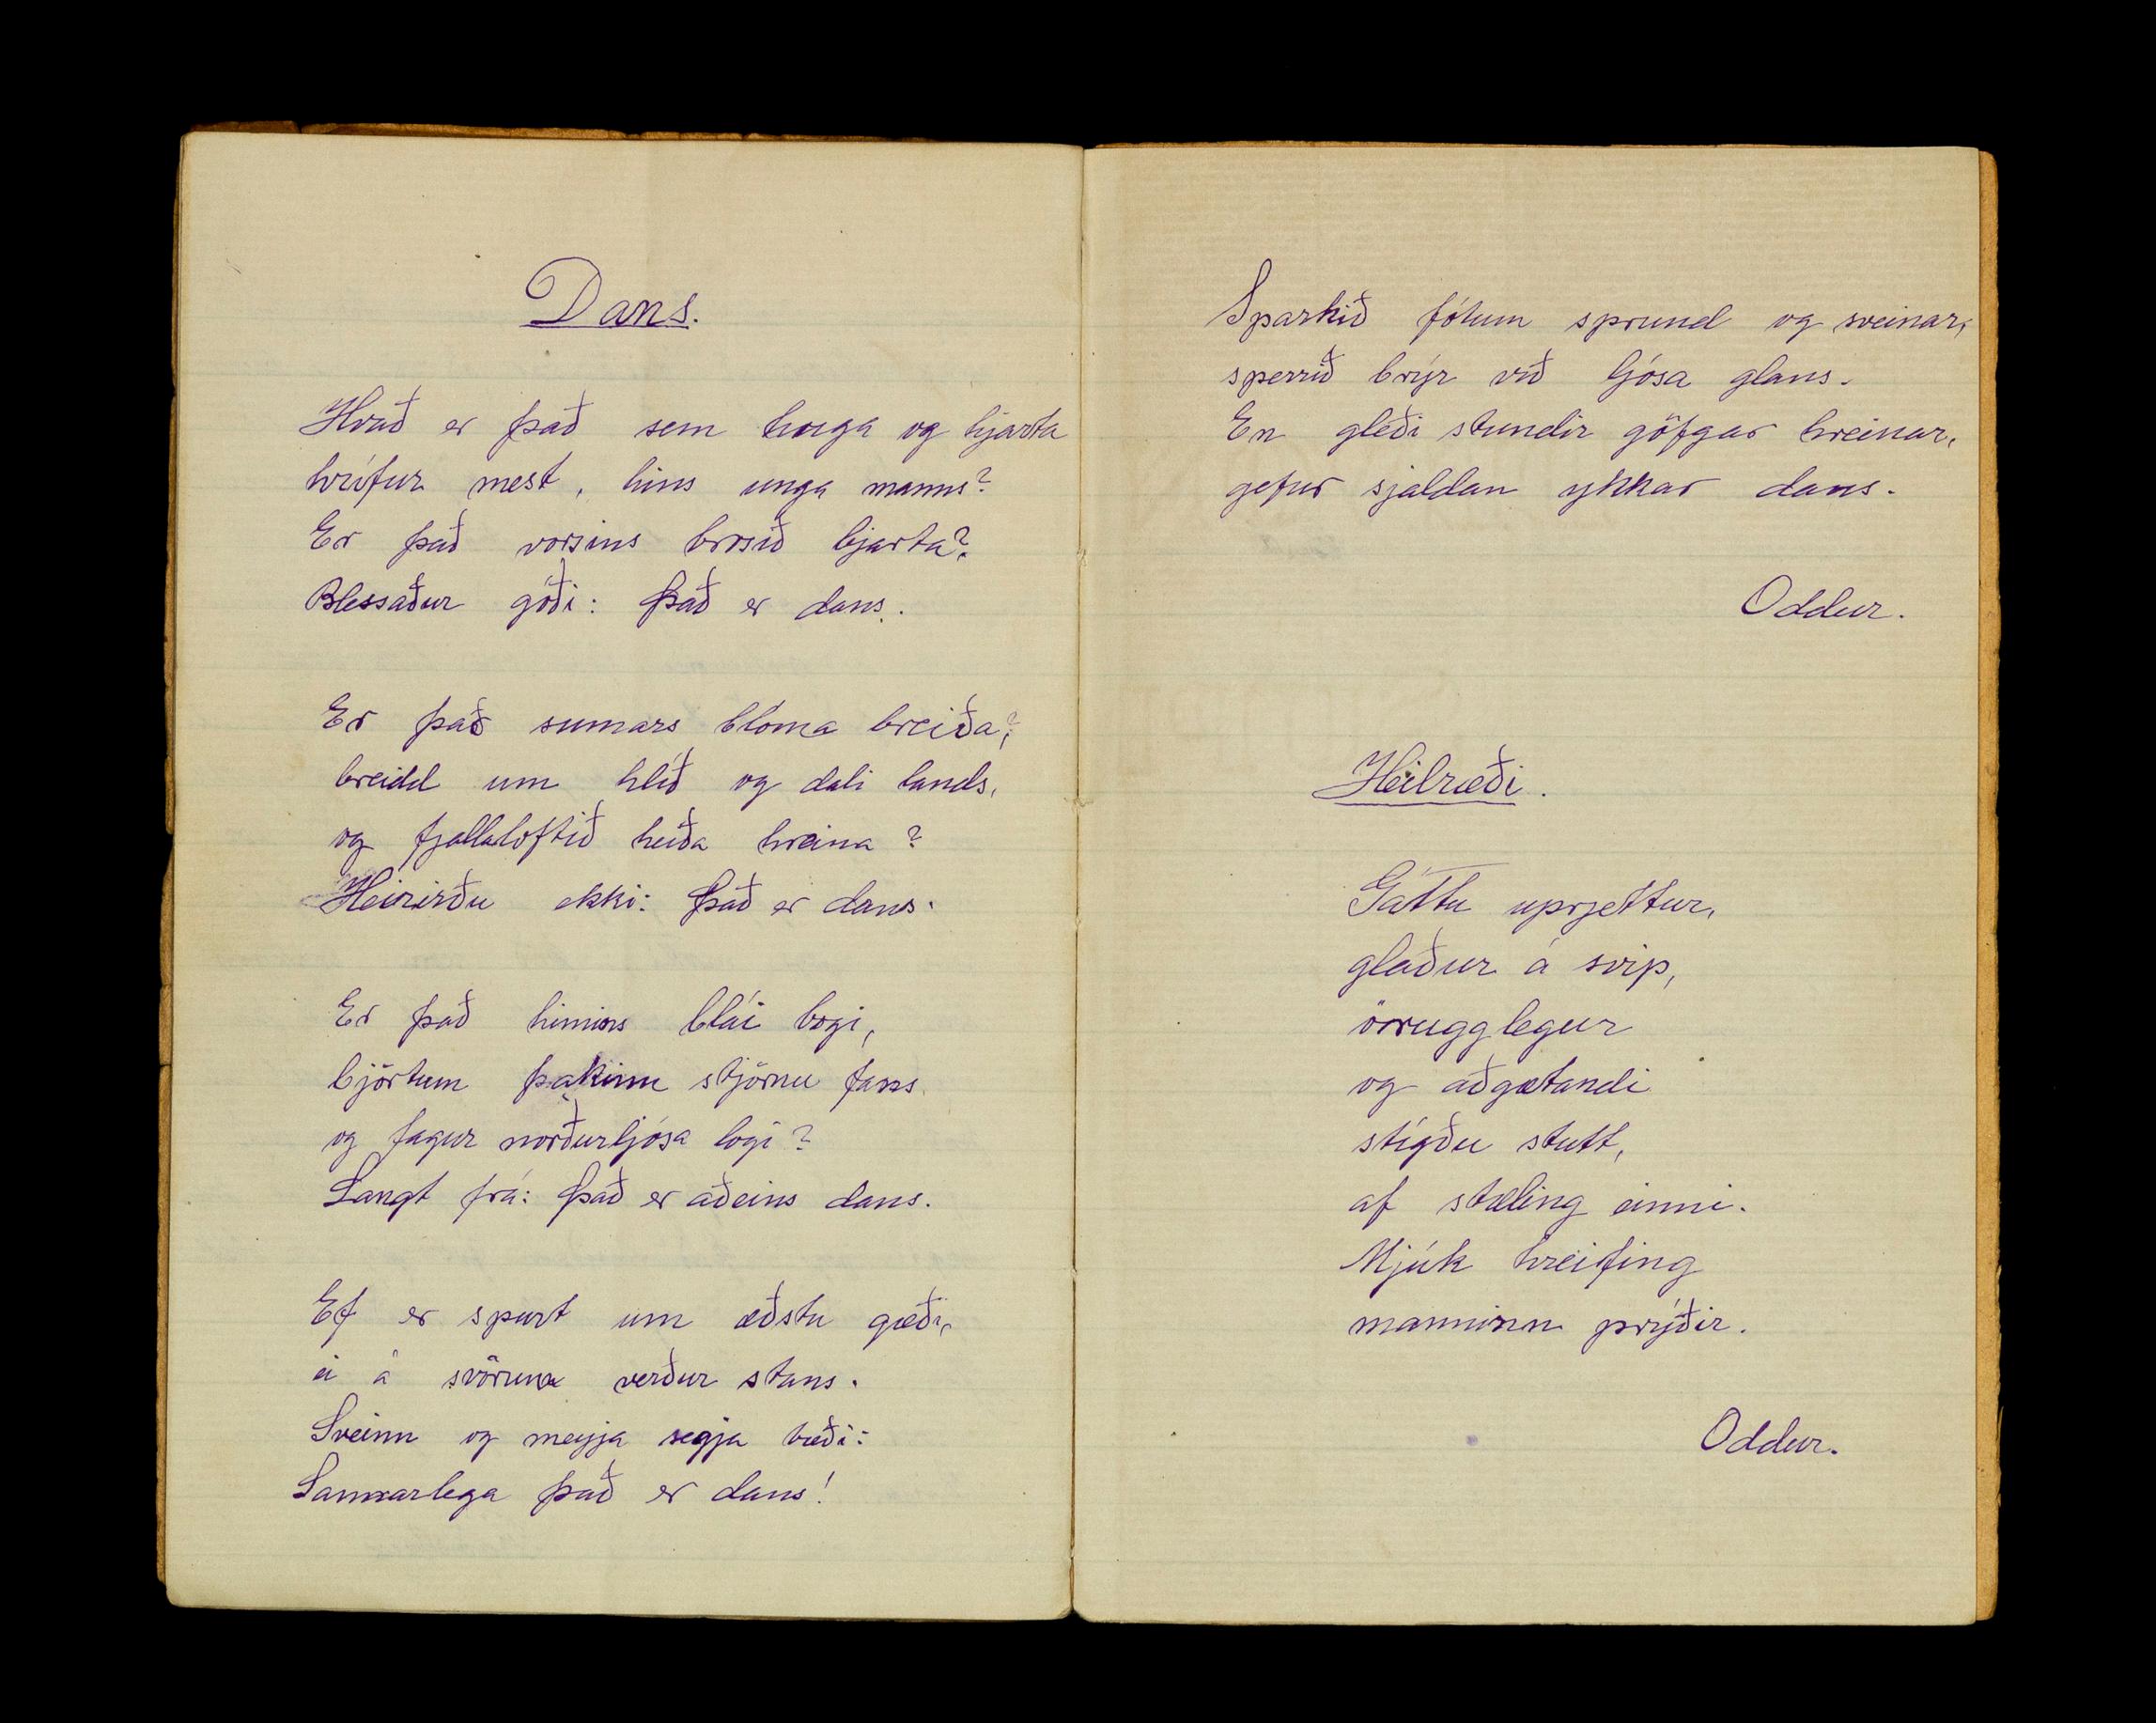 Dans.
Hvað er það sem huga og hjarta
hrífur mest, hins unga manns?
Er það vorsins brosið bjarta?
Blessaður góði: Það er dans.
Er það sumars blóma breiða?
breidd um hlíð og dali lands,
og fjallaloftið heiða hreina?
Heirirðu ekki: Það er dans.
Er það himins blái bogi,
björtum þakinn stjörnu fans
og fagur norðurljósa logi?
Langt frá: Það er aðeins dans.
Ef er spurt um æðstu gæði,
ei á svörum verður stans.
Sveinn og meyja segja bæði:
Sannarlega það er dans!
Sparkið fótum sprund og sveinar,
sperrið brýr við ljósa glans.
En gleði stundir göfgar hreinar,
gefur sjaldan ykkar dans.
Oddur.
Heilræði.
Gáttu uprjettur,
glaður á svip,
örugglegur
og aðgætandi
stígðu stutt,
af stæling einni.
Mjúk hreifing
manninn prýðir.
Oddur.